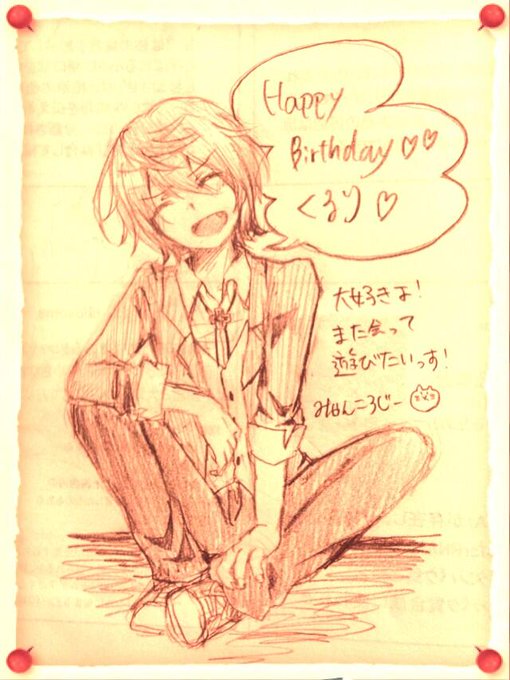 Happy
Birthday♡♡
くるり♡
大好きよ!
また会って
遊びたいっす!
みゃんころじー